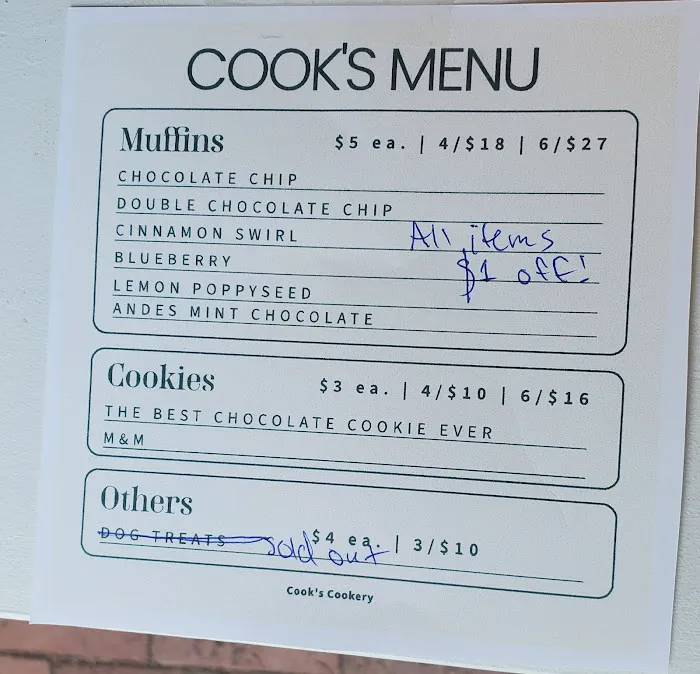 COOK'S MENU
Muffins $5 ea. | 4/$18 | 6/$27
CHOCOLATE CHIP
DOUBLE CHOCOLATE CHIP
CINNAMON SWIRL All items
BLUEBERRY $1 off!
LEMON POPPYSEED
ANDES MINT CHOCOLATE
Cookies $3 ea. | 4/$10 | 6/$16
THE BEST CHOCOLATE COOKIE EVER
M&M
Others
DOG TREATS $4 ea. | 3/$10
sold out
Cook's Cookery